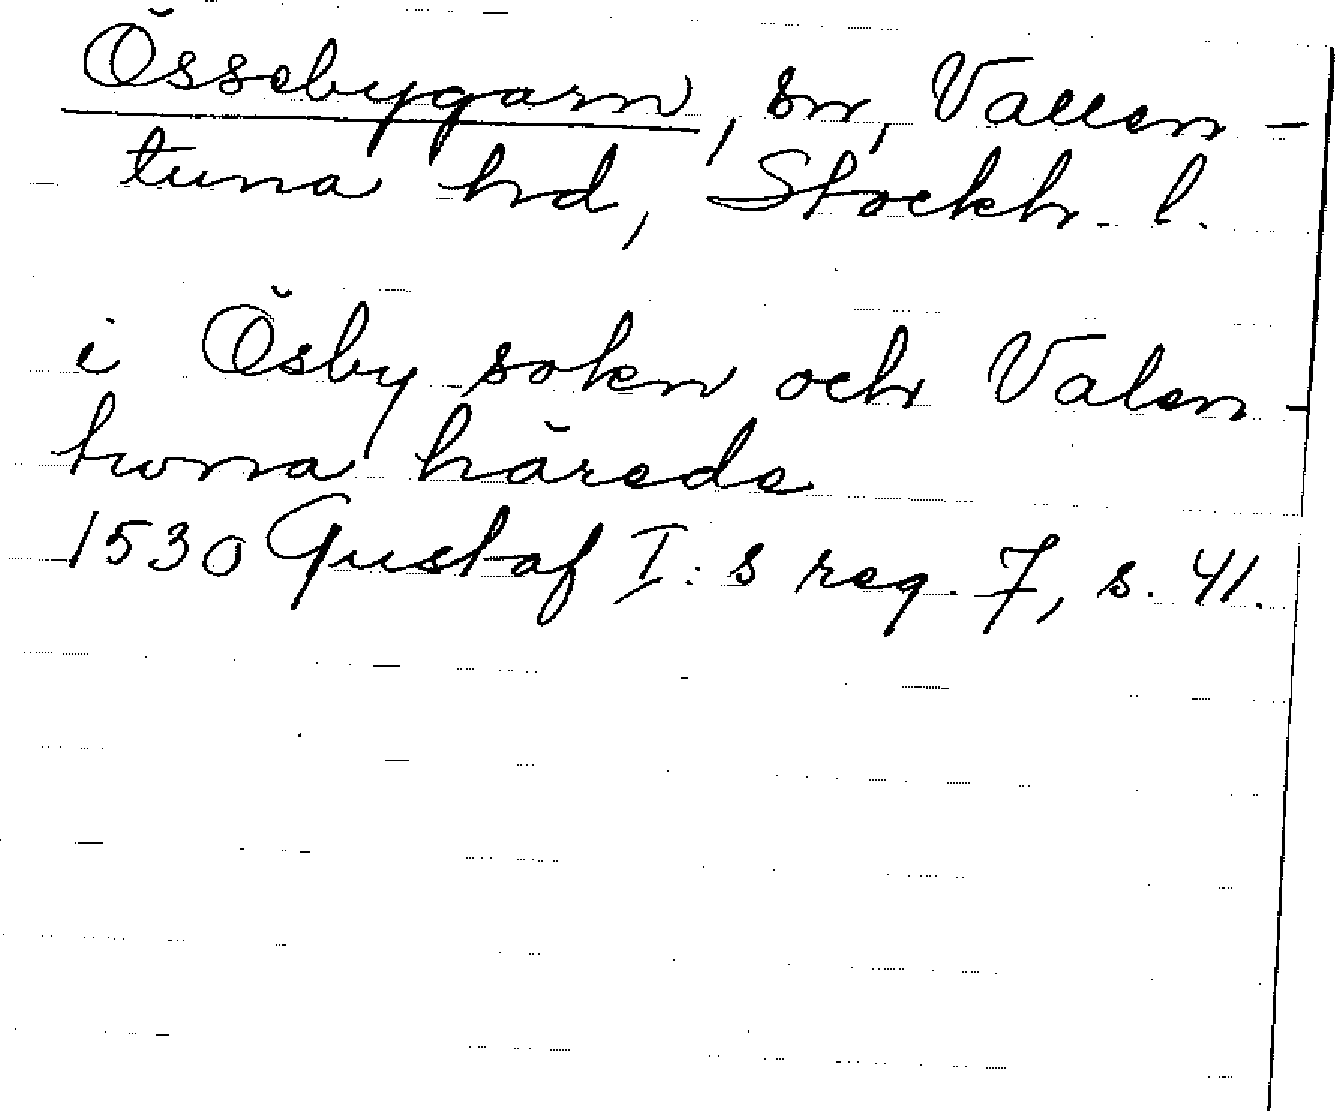 Össebygarn, sn, Vallen-
tuna hd, Stockh. l.
i Ösby sokn och Valen-
twna härede
1530 Gustaf I:s reg. 7, s. 41.